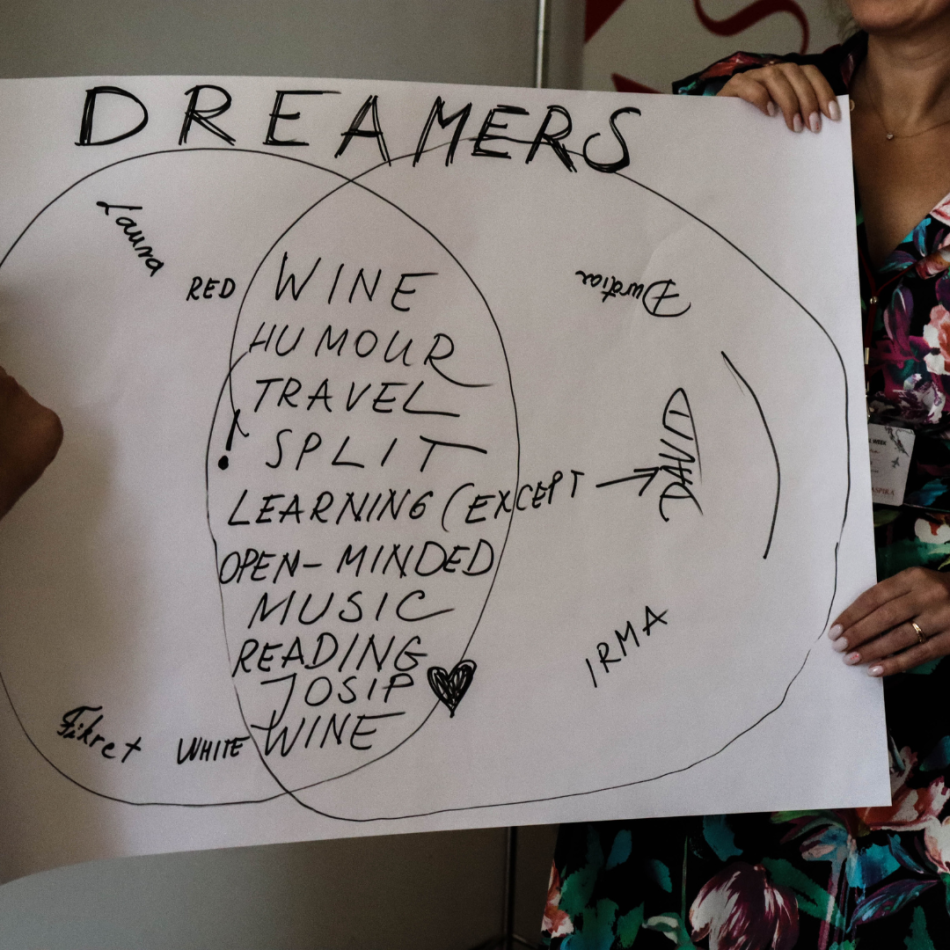 DREAMERS
Laura
RED WINE
HUMOUR
TRAVEL
SPLIT
LEARNING (EXCEPT → DAVID)
OPEN-MINDED
MUSIC
READING
JOSIP ♥
WHITE WINE
Fikret
IRMA